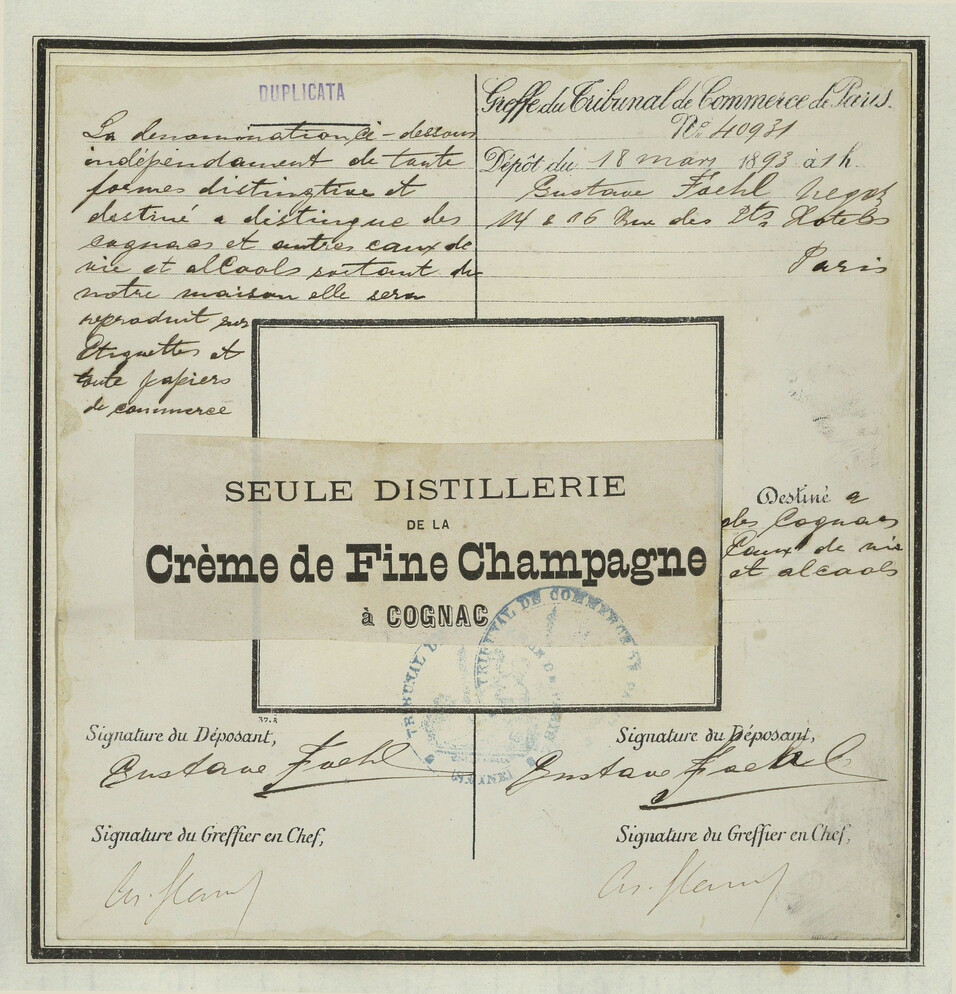 DUPLICATA
La denomination ci-dessous
indépendament de toute
formes distingtive et
destiné a distingue des
cognacs et autres eaux de
vie et alcools sortant de
notre maison elle sera
reproduit sur
Etiquettes et
toute papiers
de commerce
Greffe du Tribunal de Commerce de Paris.
No. 40931
Dépôt du 18 mars 1893 à 1h.
Gustave Foehl Negot
14 & 16 Rue des Pts Hotels
Paris
SEULE DISTILLERIE
DE LA
Crème de Fine Champagne
à COGNAC
Destiné a
des Cognacs
Eaux de vie
et alcools
TRIBUNAL DE COMMERCE DE
(SEINE)
37.8
Signature du Déposant,
Gustave Foehl
Signature du Greffier en Chef,
Signature du Déposant,
Gustave Foehl
Signature du Greffier en Chef,